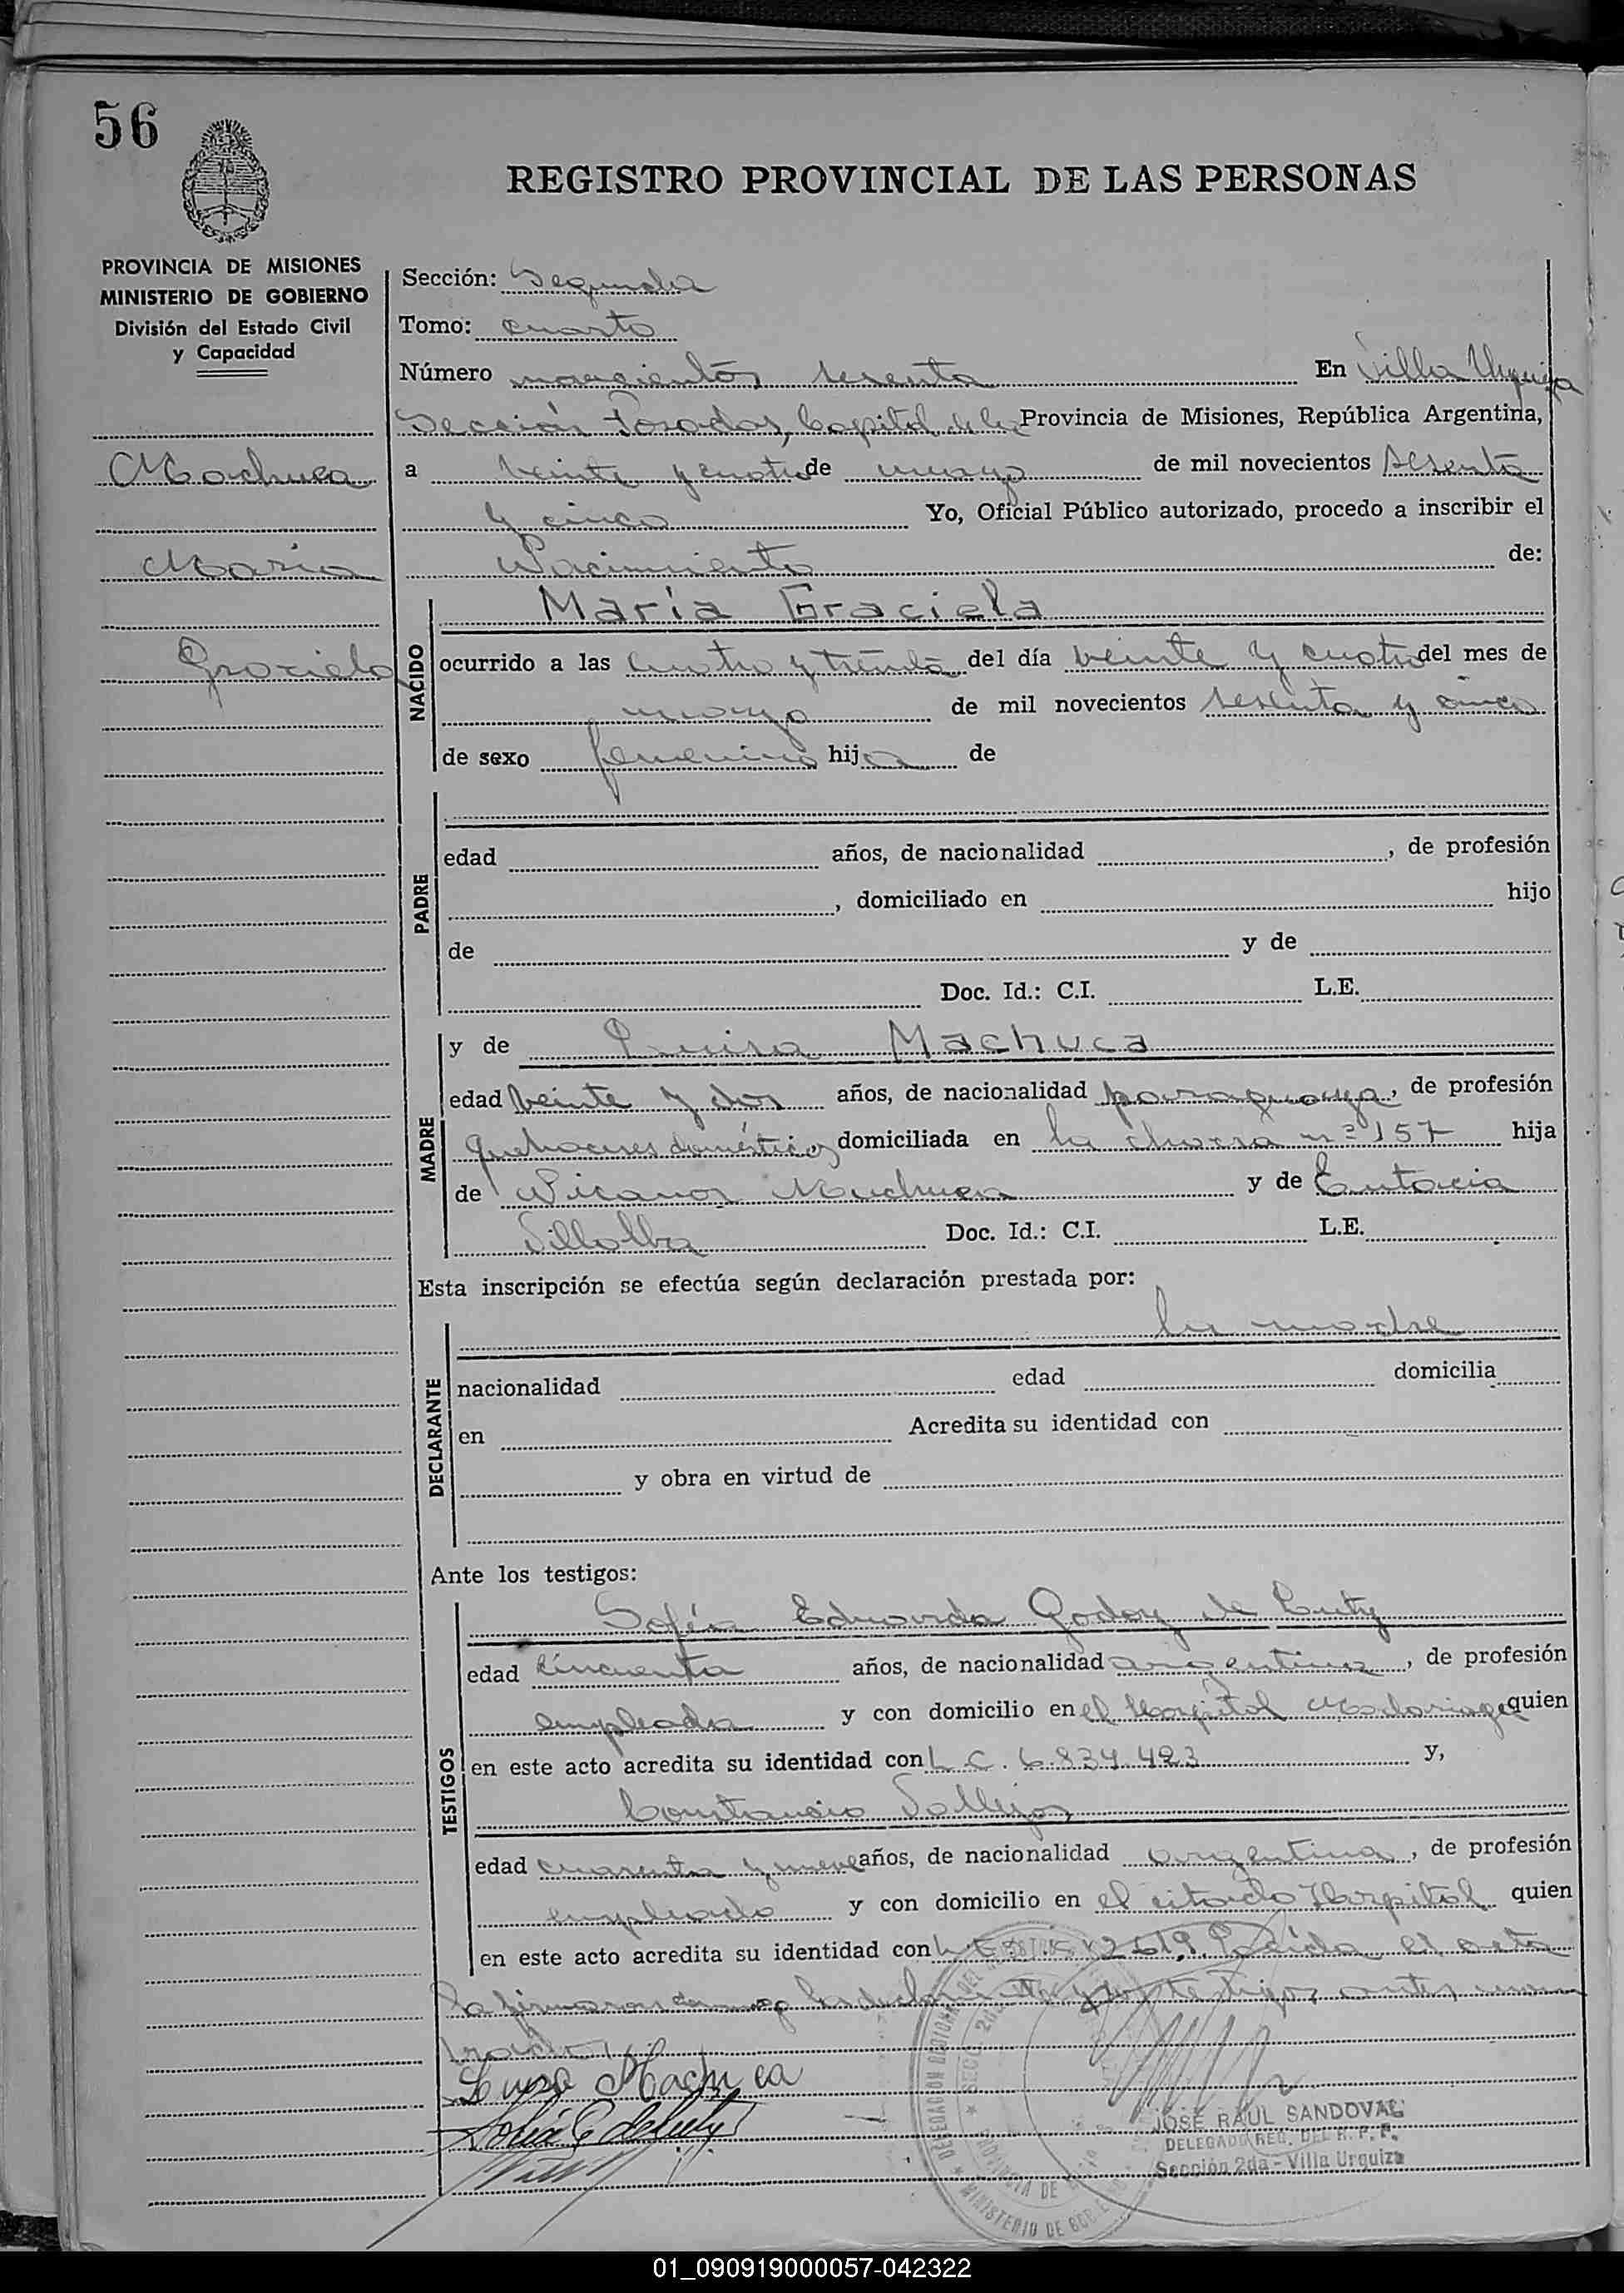 56
REGISTRO PROVINCIAL DE LAS PERSONAS
PROVINCIA DE MISIONES
MINISTERIO DE GOBIERNO
División del Estado Civil
y Capacidad
Machuca
Maria
Graciela
Sección: Segunda
Tomo: cuarto
Número novecientos sesenta En Villa Urquiza
Sección Posadas, Capital de la Provincia de Misiones, República Argentina,
a veinte y cuatro de mayo de mil novecientos sesenta
y cinco Yo, Oficial Público autorizado, procedo a inscribir el
Nacimiento de:
NACIDO
María Graciela
ocurrido a las cuatro y treinta del día veinte y cuatro del mes de
mayo de mil novecientos sesenta y cinco
de sexo femenino hija de
PADRE
edad años, de nacionalidad , de profesión
, domiciliado en hijo
de y de
Doc. Id.: C.I. L.E.
MADRE
y de Luisa Machuca
edad veinte y dos años, de nacionalidad paraguaya, de profesión
quehaceres domésticos domiciliada en la chacra nº 157 hija
de Nicanor Machuca y de Eutacia
Villalba Doc. Id.: C.I. L.E.
Esta inscripción se efectúa según declaración prestada por:
DECLARANTE
la madre
nacionalidad edad domicilia
en Acredita su identidad con
y obra en virtud de
Ante los testigos:
TESTIGOS
Sofía Eduarda Godoy de Cuty
edad cincuenta años, de nacionalidad argentina, de profesión
empleada y con domicilio en el Hospital Madariaga quien
en este acto acredita su identidad con L.C. 6.839.423 y,
Constancio Vallejos
edad cuarenta y nueve años, de nacionalidad argentina, de profesión
empleado y con domicilio en el citado Hospital quien
en este acto acredita su identidad con Leída el acta
la firmaron conmigo la declarante y los testigos antes nom
brados
Luisa Machuca
JOSÉ RAUL SANDOVAL
DELEGADO REG. DEL R. P. P.
Sección 2da - Villa Urquiza
01_090919000057-042322